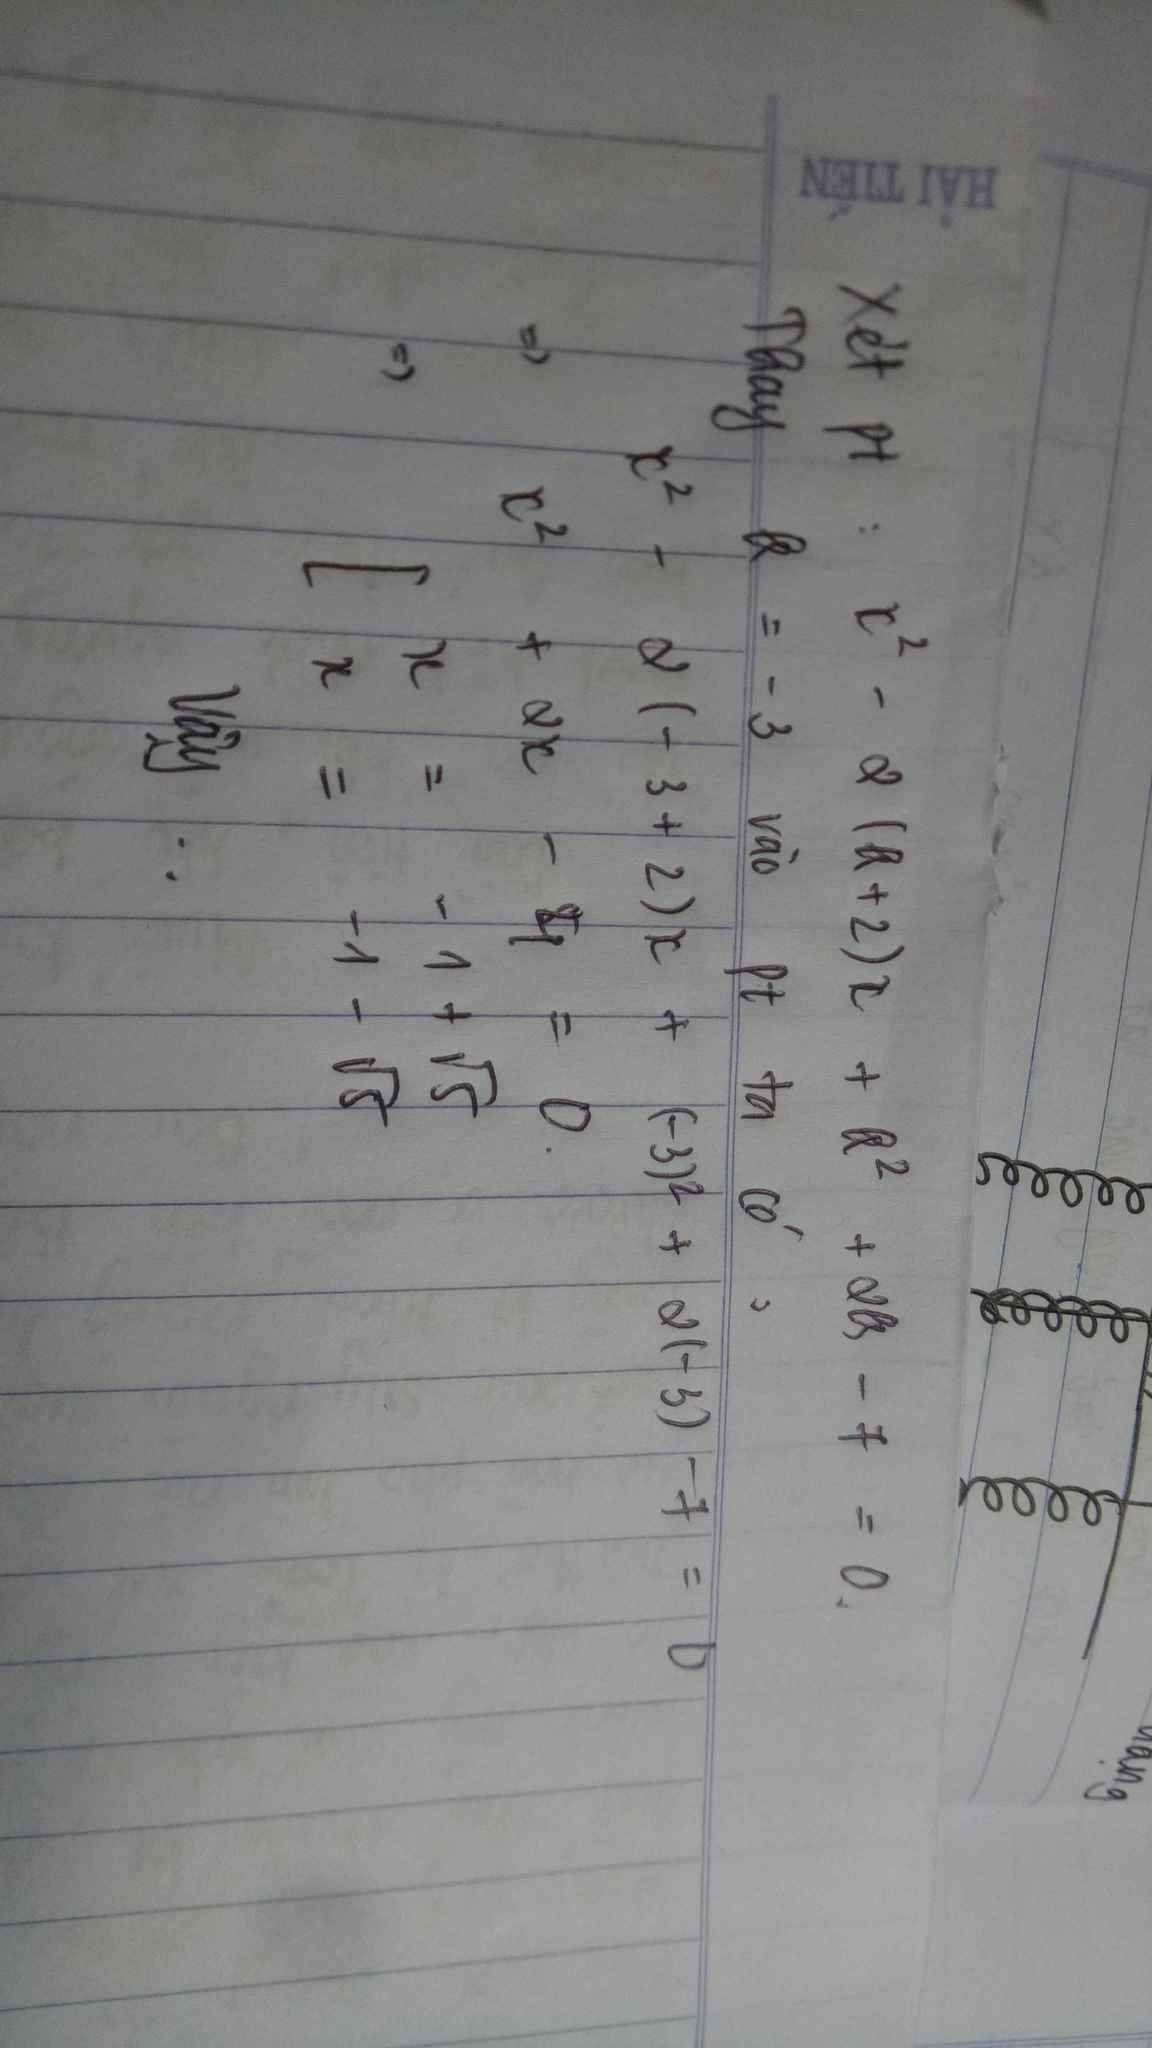 HẢI TIẾN
Xét pt : x² - 2(a+2)x + a² + 2a - 7 = 0.
Thay a = -3 vào pt ta có :
x² - 2(-3+2)x + (-3)² + 2(-3) - 7 = 0
=> x² + 2x - 4 = 0.
=> [ x = -1 + √5
x = -1 - √5
Vậy :
nạng